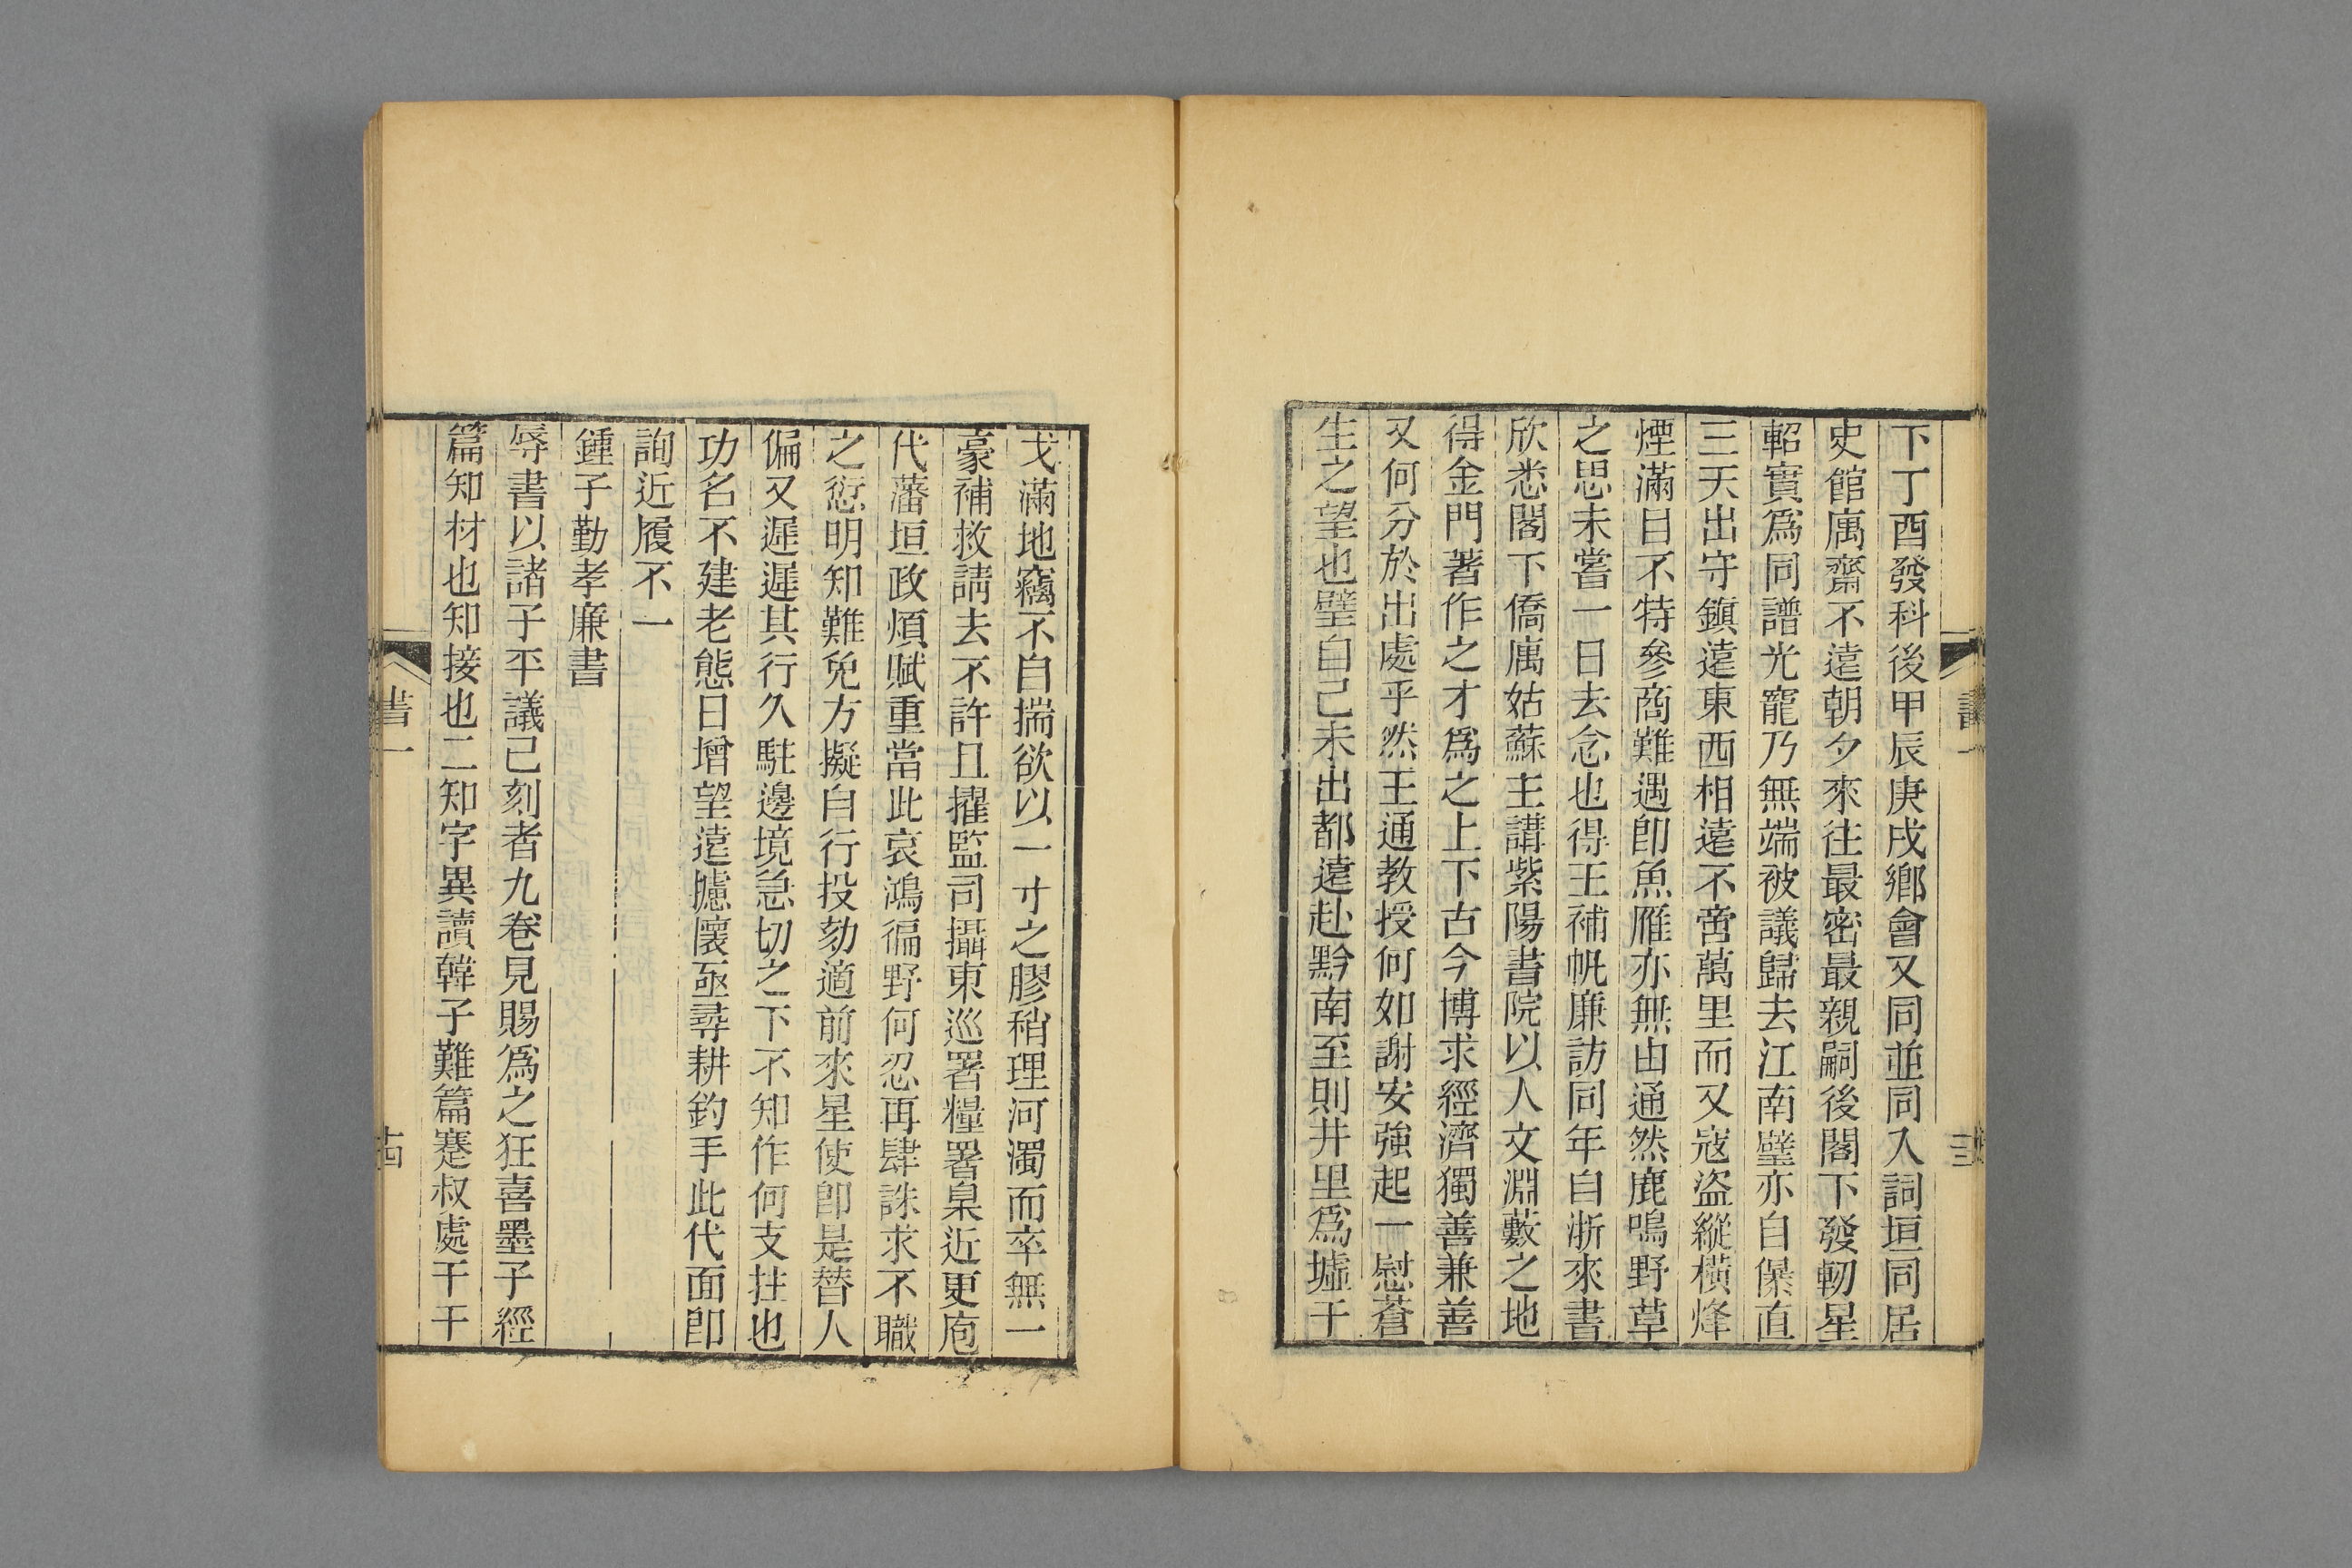 書一
十三
下丁酉發科後甲辰庚戌鄉會又同並同入詞垣同居
史館寓齋不遠朝夕來往最密最親嗣後閣下發軔星
軺實爲同譜光寵乃無端被議歸去江南壁亦自保直
三天出守鎭遠東西相遠不啻萬里而又寇盜縱橫烽
煙滿目不特參商難遇卽魚雁亦無由通然鹿鳴野草
之思未嘗一日去念也得王補帆廉訪同年自浙來書
欣悉閣下僑寓姑蘇主講紫陽書院以人文淵藪之地
得金門著作之才爲之上下古今博求經濟獨善兼善
又何分於出處乎然王通教授何如謝安強起一慰蒼
生之望也壁自己未出都遠赴黔南至則井里爲墟干
戈滿地竊不自揣欲以一寸之膠稍理河濁而卒無一
豪補救請去不許且擢監司攝東巡署糧署臬近更庖
代藩垣政煩賦重當此哀鴻徧野何忍再肆誅求不職
之愆明知難免方擬自行投劾適前來星使卽是替人
偏又遲遲其行久駐邊境急切之下不知作何支拄也
功名不建老態日增望遠攄懷亟尋耕釣手此代面卽
詢近履不一
鍾子勤孝廉書
辱書以諸子平議已刻者九卷見賜爲之狂喜墨子經
篇知材也知接也二知字異讀韓子難篇蹇叔處干干
書一
十四